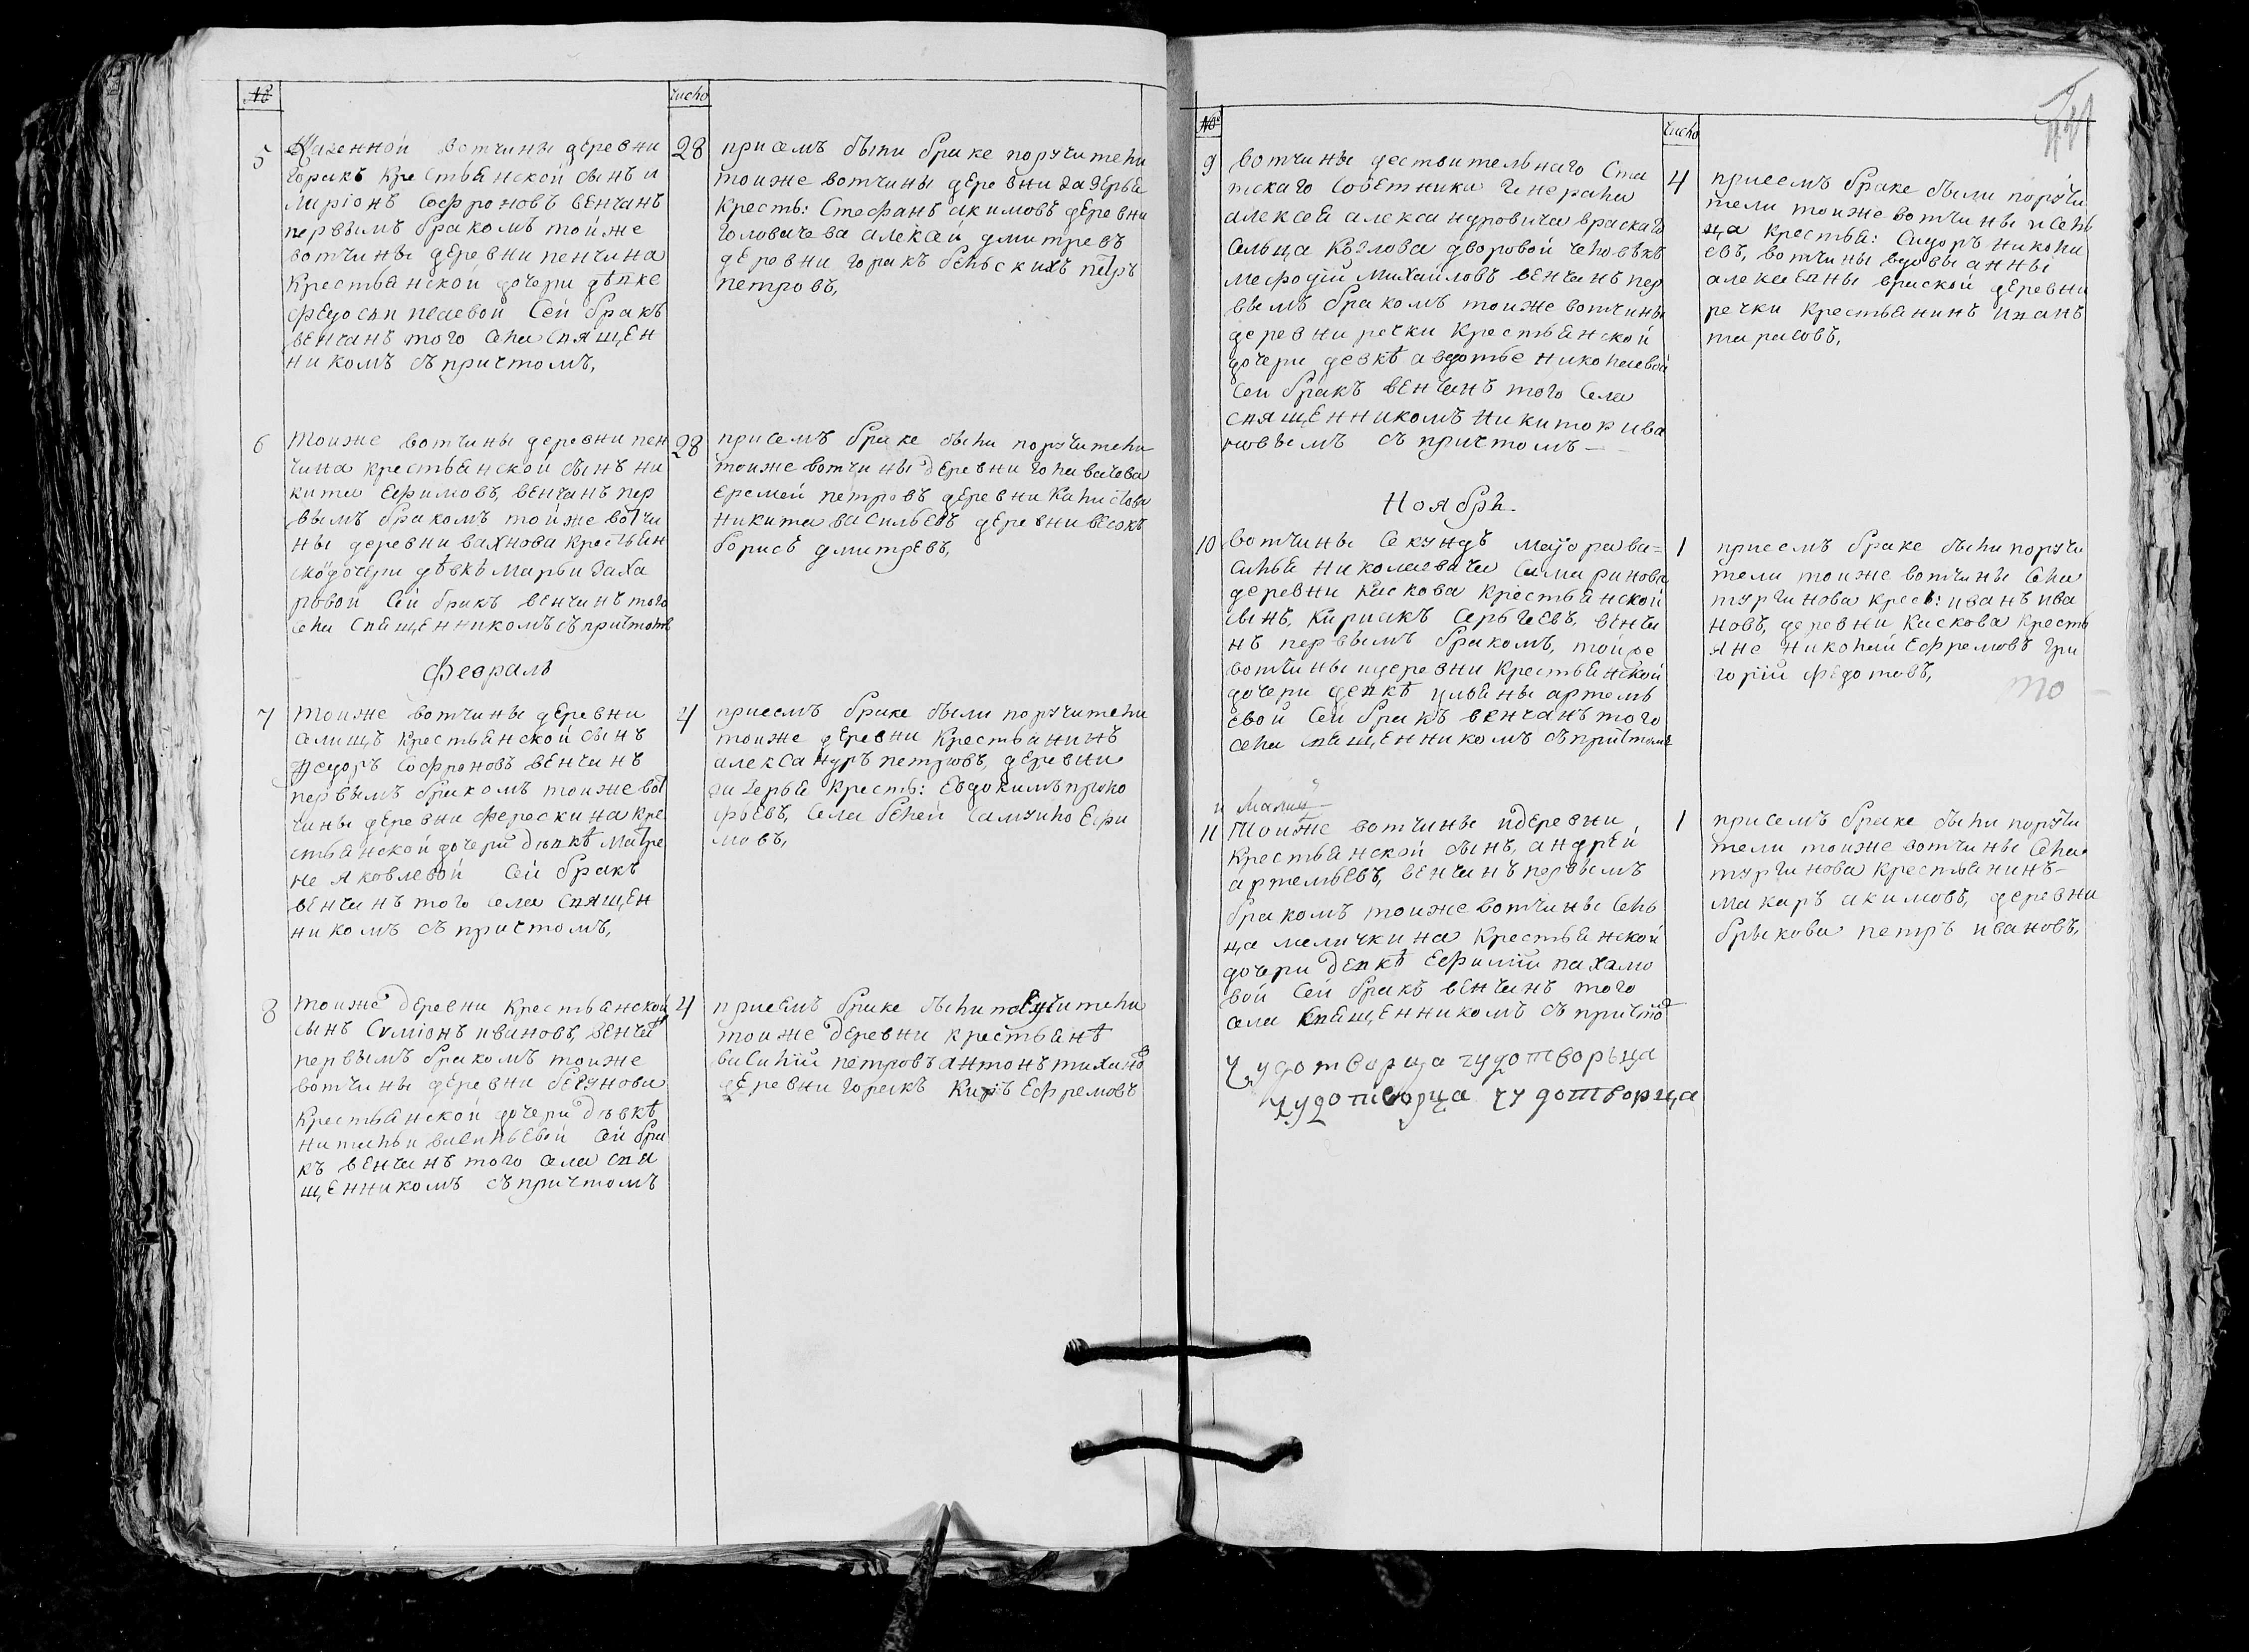 №
число
5
Казенной вотчины деревни
Горакъ крестьянской сынъ и
ларіонъ Софроновъ венчанъ
первымъ бракомъ тойже
вотчины деревни пенчина
крестьянской дочери дѣвке
федосьи исаевой Сей бракъ
венчанъ того села священ
никомъ съ причтомъ,
28
присемъ были браке поручители
тоиже вотчины деревни
крестъ: Стефанъ акимовъ деревни
Головачева алексѣй дмитревъ
деревни горакъ петръ
петровъ,
6
Тоиже вотчины деревни пен
чина крестьянской сынъ ни
кита Ефимовъ, венчанъ пер
вымъ бракомъ тойже вотчи
ны деревни вахнова крестьян
ской дочери дѣвкѣ марьи заха
ровой Сей бракъ венчанъ того
села священникомъ съ причтомъ
28
присемъ браке были поручители
тоиже вотчины деревни головачева
Еремей петровъ деревни
Никита васильевъ деревни
борисъ дмитревъ,
Февраль
7
Тоиже вотчины деревни
селищъ крестьянской сынъ
Федоръ Софроновъ венчанъ
первымъ бракомъ тоиже вот
чины деревни ферескина кре
стьянской дочери дѣвкѣ матре
не яковлевой Сей бракъ
венчанъ того села священ
никомъ съ причтомъ,
4
присемъ браке были поручители
тоиже деревни крестьянинъ
александръ петровъ, деревни
крестъ: Евдокимъ проко
фьевъ, села белей самуило Ефи
мовъ,
8
тоиже деревни крестьянской
сынъ Симіонъ ивановъ, венчан
первымъ бракомъ тоиже
вотчины деревни бегунова
крестьянской дочери дѣвкѣ
натальи васильевой Сей бра
къ венчанъ того села свя
щенникомъ съ причтомъ
4
присемъ браке были поручители
тоиже деревни крестьянѣ
василій петровъ антонъ тихано
деревни горакъ Киръ Ефремовъ
№
число
9
вотчины действительнаго Ста
тскаго Советника Генерала
алексея александровича враскаго
сельца Козлова дворовой человѣкъ
мефодій михайловъ венчанъ пер
вымъ бракомъ тоиже вотчины
деревни речки крестьянской
дочери девкѣ авдотье николаевой
Сей бракъ венчанъ того села
священникомъ никиторъ ива
новымъ съ причтомъ —
4
присемъ браке были поручи
тели тоиже вотчины и сель
ца крестья: Сидоръ николи
евъ, вотчины вдовы анны
алексеевны враской деревни
речки крестьянинъ иванъ
тарасовъ,
Ноябрь
10
вотчины Секундъ маіора ва=
силья николаевича Самаринова
деревни Каскова крестьянской
сынъ, Кириакъ Сергеевъ, венча
нъ первымъ бракомъ, тойже
вотчины идеревни крестьянской
дочери девкѣ ульяны артемь
евой Сей бракъ венчанъ того
села священникомъ съ причтомъ
1
присемъ браке были поручи
тели тоиже вотчины села
тургинова крест: иванъ ива
новъ, деревни Каскова кресть
яне николай Ефремовъ гри
горій федотовъ,
то
11
Тоиже вотчины идеревни
крестьянской сынъ, андрѣй
артемьевъ, венчанъ первымъ
бракомъ тоиже вотчины сель
ца меличкина крестьянской
дочери девкѣ Ефиміи пахамо
вой Сей бракъ венчанъ того
села священникомъ съ причто
1
присемъ браке были поручи
тели тоиже вотчины села
тургинова крестьянинъ
макаръ акимовъ, деревни
брыкова петръ ивановъ,
Чудотворца чудотворьца
чудотворца чудотворца